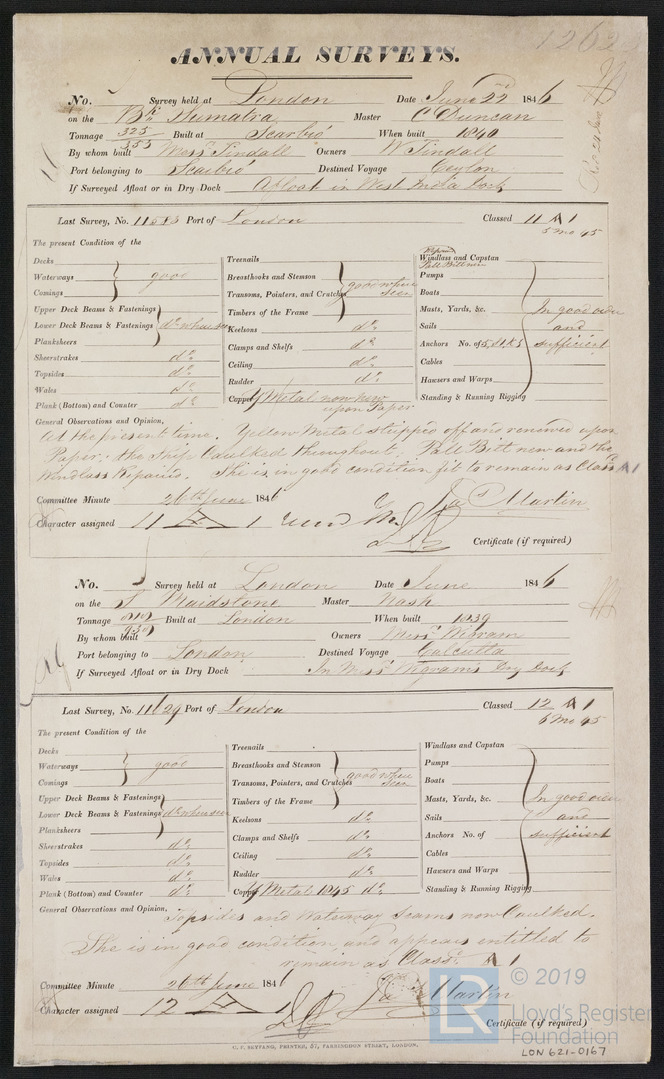 ANNUAL SURVEYS.
No. Survey held at London Date June 22 1846
on the Bk Sumatra Master C Duncan
Tonnage 325 Built at Scarbro' When built 1840
353
By whom built Messrs Tindall Owners W Tindall
Port belonging to Scarbro' Destined Voyage Ceylon
If Surveyed Afloat or in Dry Dock Afloat in West India Dock
Last Survey, No. Port of London Classed 11 A 1
5 mo 45
The present Condition of the
Decks
Waterways good
Comings
Upper Deck Beams & Fastenings
Lower Deck Beams & Fastenings do where seen
Planksheers
Sheerstrakes do
Topsides do
Wales do
Plank (Bottom) and Counter do
Treenails
Breasthooks and Stemson good where
Transoms, Pointers, and Crutches seen
Timbers of the Frame
Keelsons do
Clamps and Shelfs do
Ceiling do
Rudder do
Copper Y Metal now new
upon Paper
Repaired
Windlass and Capstan
Pall Bitt new
Pumps
Boats
Masts, Yards, &c. In good order
Sails and
Anchors No. of sufficient
Cables
Hawsers and Warps
Standing & Running Rigging
General Observations and Opinion,
At the present time. Yellow Metal stripped off and renewed upon
Paper; the Ship Caulked throughout. Pall Bitt new and the
Windlass Repaired. She is in good condition fit to remain as Classd A 1
Committee Minute 26th June 1846 Jas Martin
Character assigned 11 A 1
Certificate (if required)
No. Survey held at London Date June 1846
on the S Maidstone Master Nash
Tonnage Built at London When built 1839
By whom built Owners Messrs Wigram
Port belonging to London Destined Voyage Calcutta
If Surveyed Afloat or in Dry Dock In Messrs Wigram's Dry Dock
Last Survey, No. 11629 Port of London Classed 12 A 1
6 mo 45
The present Condition of the
Decks
Waterways good
Comings
Upper Deck Beams & Fastenings
Lower Deck Beams & Fastenings do where seen
Planksheers
Sheerstrakes do
Topsides do
Wales do
Plank (Bottom) and Counter do
Treenails
Breasthooks and Stemson good where
Transoms, Pointers, and Crutches seen
Timbers of the Frame
Keelsons do
Clamps and Shelfs do
Ceiling do
Rudder do
Copper Y Metal 1845 do
Windlass and Capstan
Pumps
Boats
Masts, Yards, &c. In good order
Sails and
Anchors No. of sufficient
Cables
Hawsers and Warps
Standing & Running Rigging
General Observations and Opinion, Topsides and Waterway Seams now Caulked.
She is in good condition and appears entitled to
remain as Classd A 1
Committee Minute 26th June 1846 Jas Martin
Character assigned 12 A 1
Certificate (if required)
C. F. SEYFANG, PRINTER, 57, FARRINGDON STREET, LONDON.
© 2019
LR Lloyd's Register
Foundation
LON 621-0167